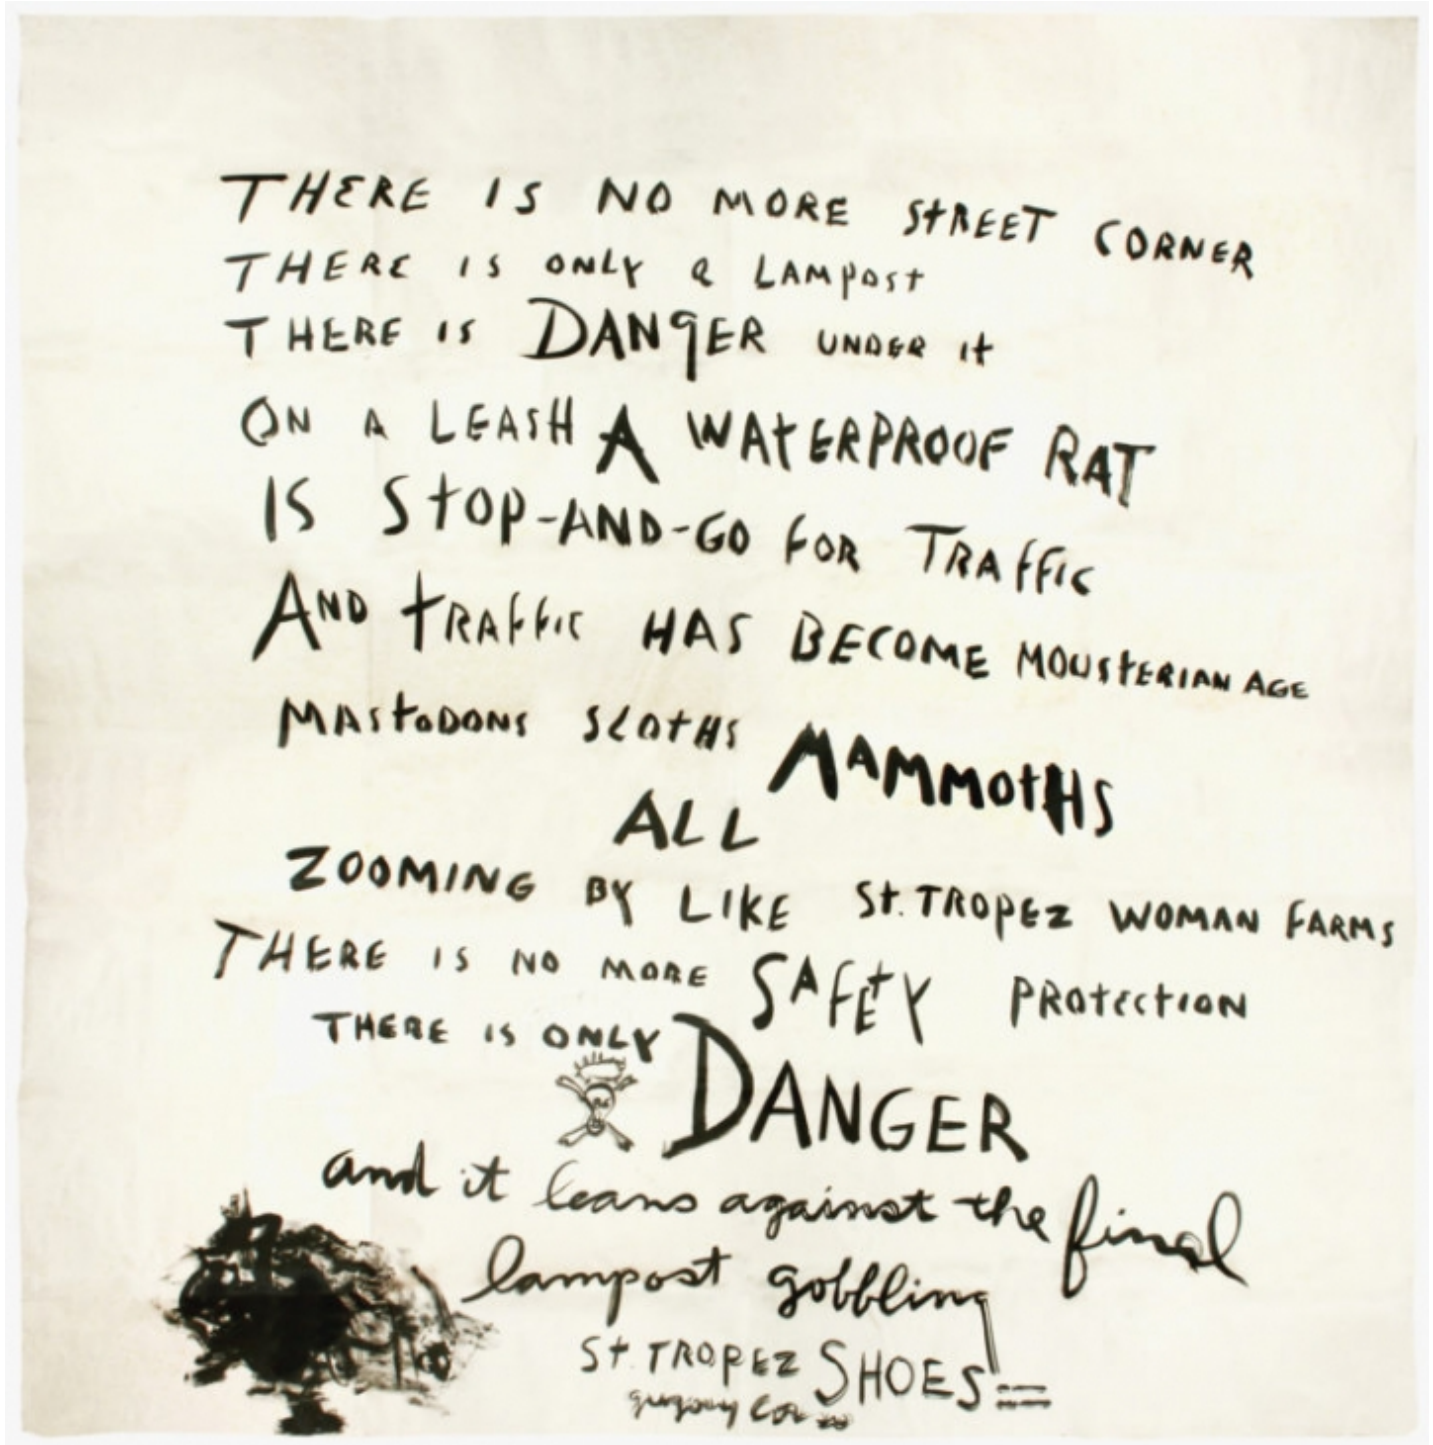 THERE IS NO MORE STREET CORNER
THERE IS ONLY a LAMPOST
THERE IS DANGER UNDER It
ON A LEASH A WATERPROOF RAT
IS StOP-AND-GO FOR TRAFFIC
AND tRAFFIC HAS BECOME MOUSTERIAN AGE
MAStODONS SLOtHS MAMMOtHS
ALL
ZOOMING BY LIKE St. TROPEZ WOMAN FARMS
THERE IS NO MORE SAFEtY PROtECtION
THERE IS ONLY
DANGER
and it leans against the final
lampost gobbling
St. TROPEZ SHOES
gregory